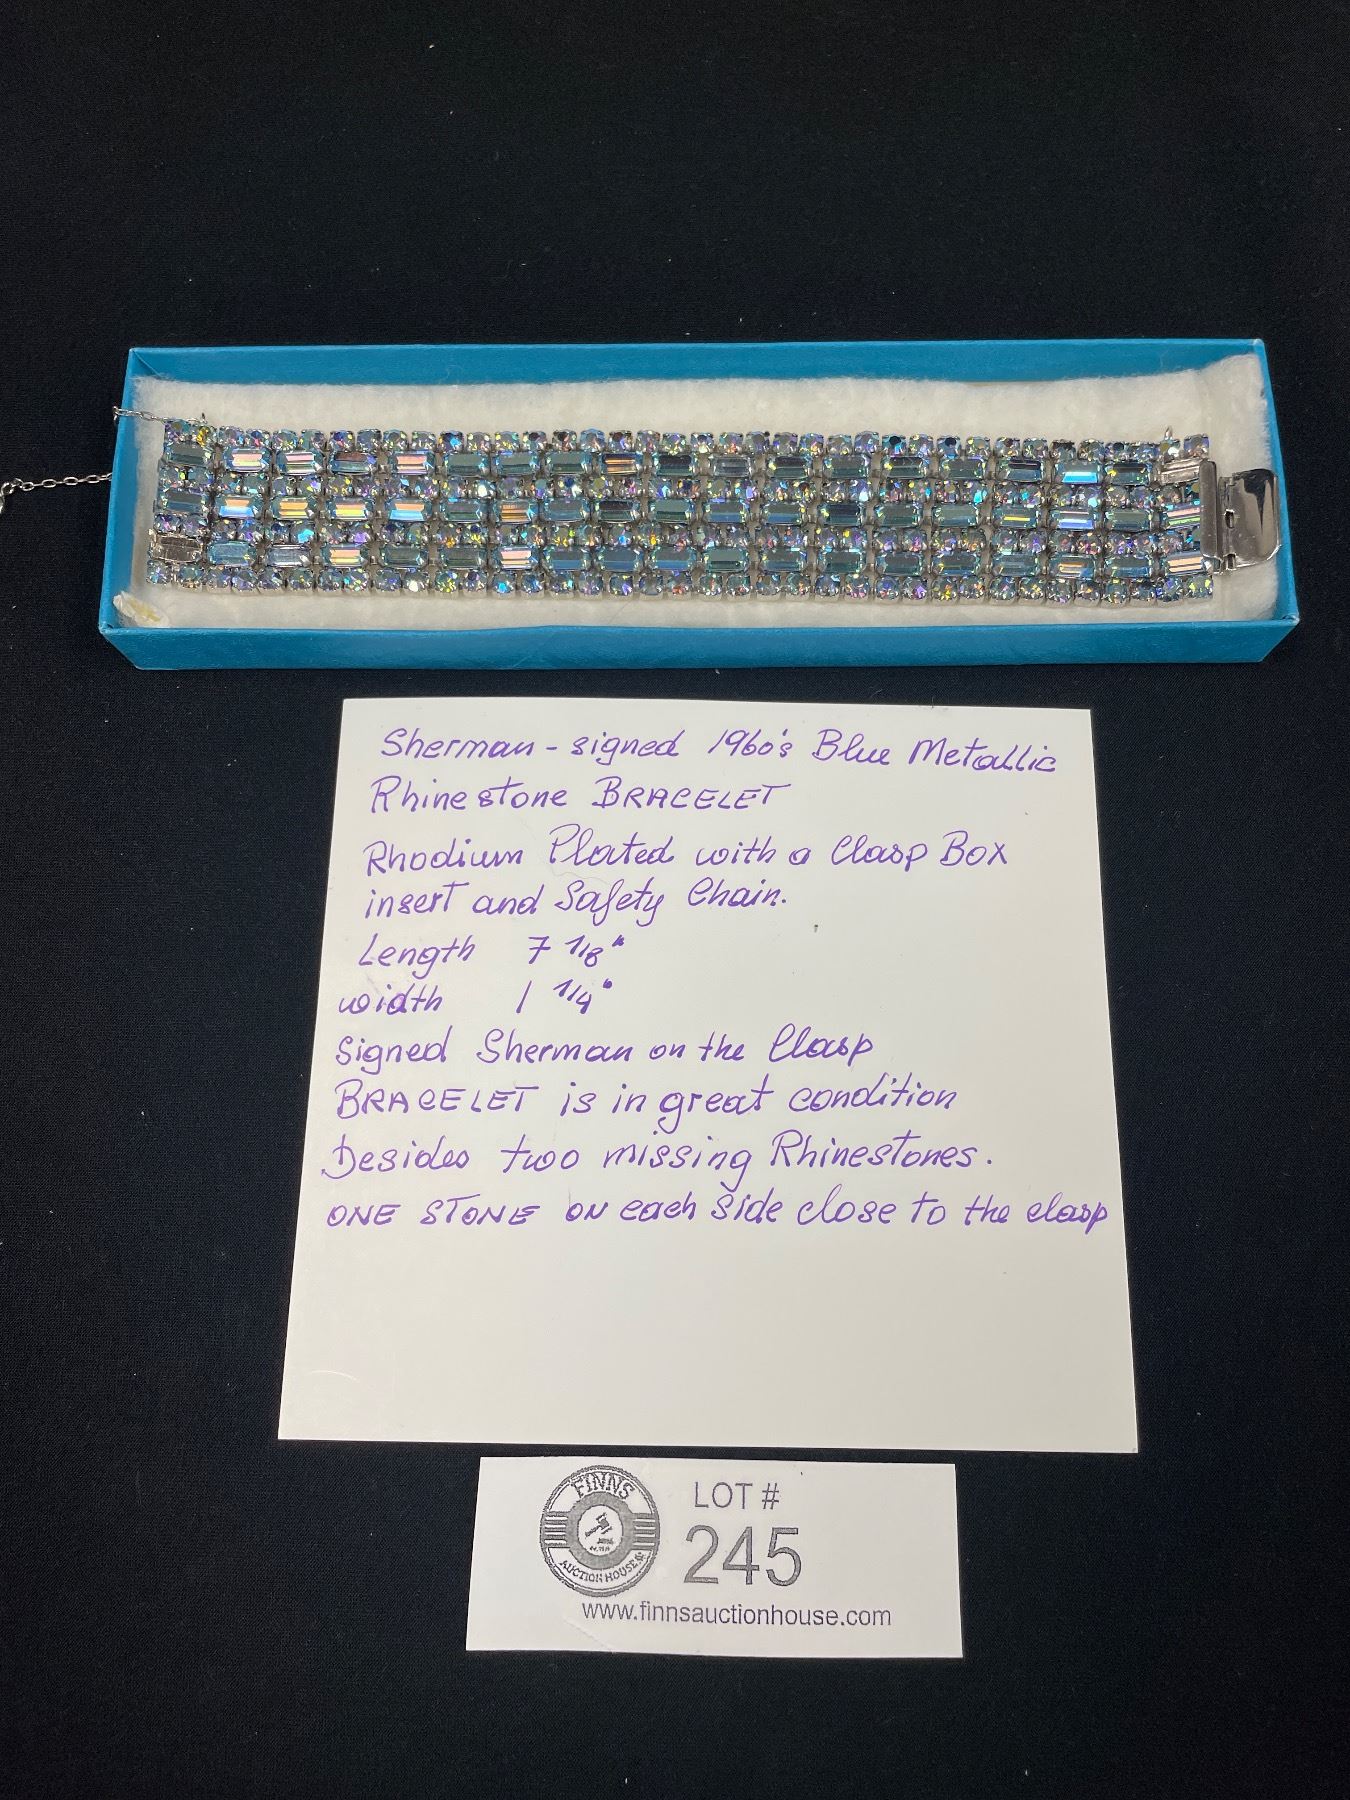 Sherman - signed 1960's Blue Metallic
Rhinestone BRACELET
Rhodium Plated with a Clasp Box
insert and Safety Chain.
Length 7 1/8"
width 1 1/4"
Signed Sherman on the Clasp
BRACELET is in great condition
Besides two missing Rhinestones.
ONE STONE ON each side close to the clasp
FINNS
AUCTION HOUSE
LOT #
245
www.finnsauctionhouse.com